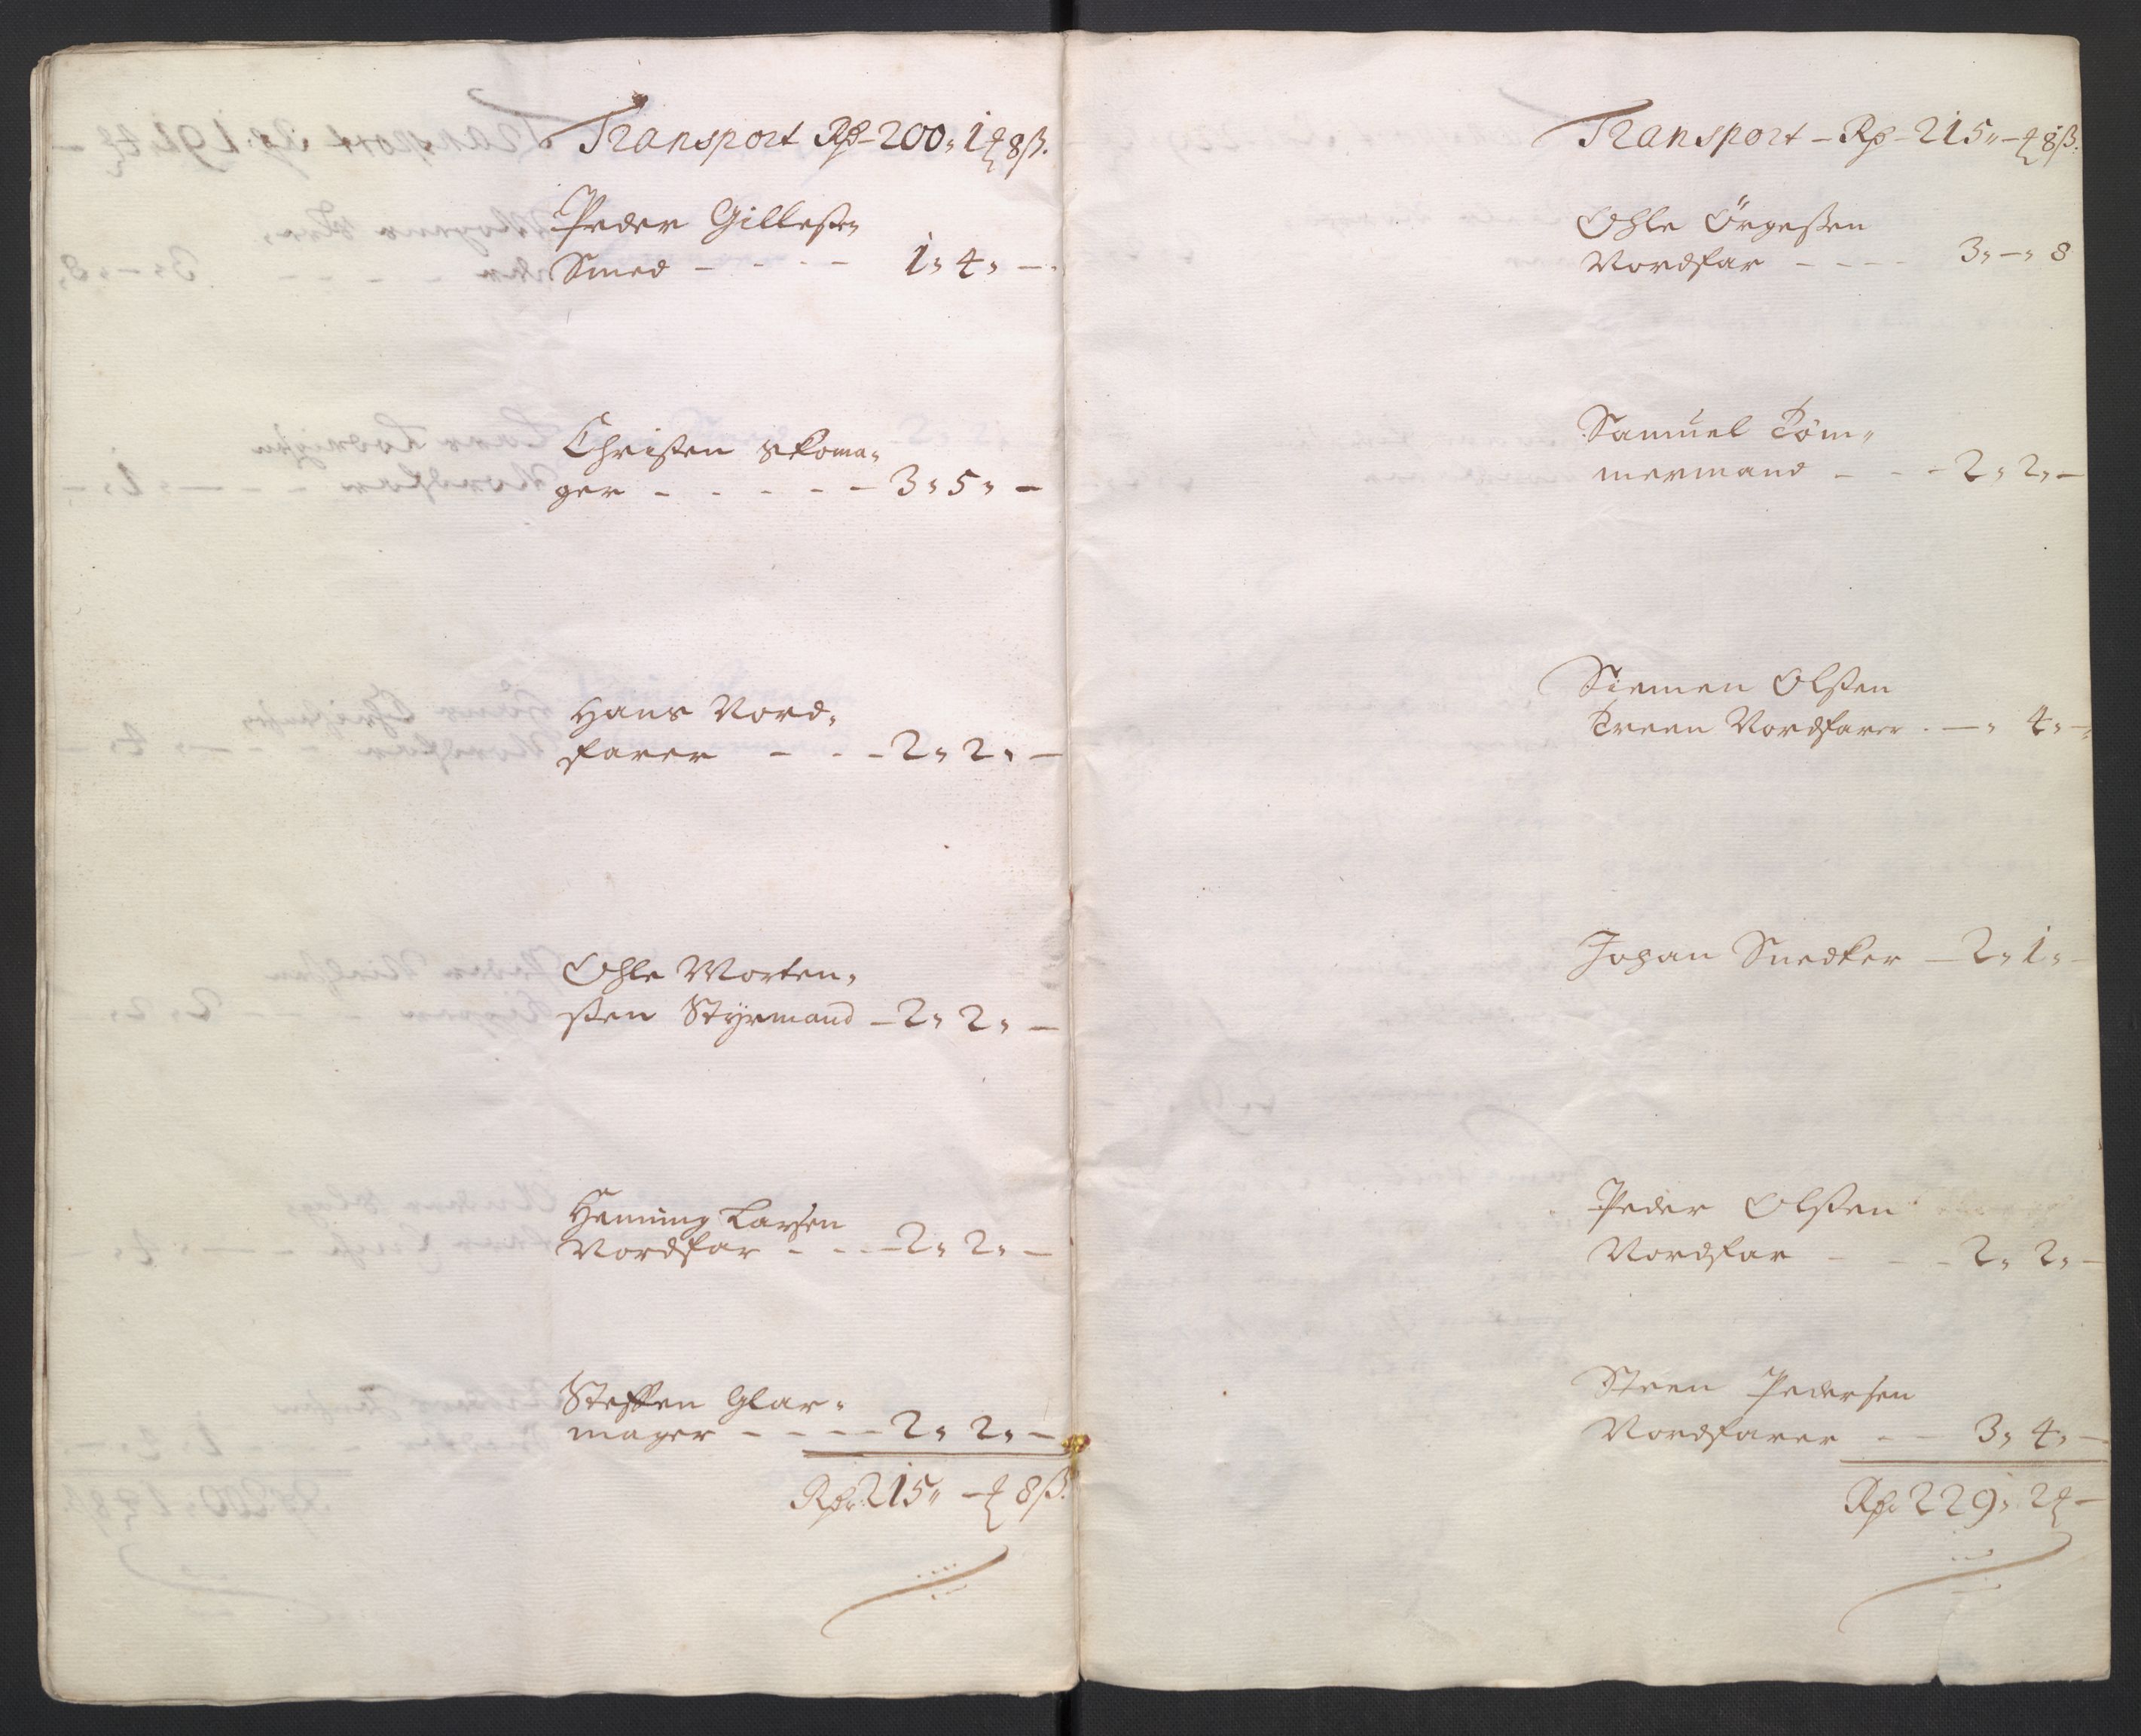 Transport Rd - 200 " 1 ℔ 8 ß.
Peder Gilleßen
Smed - - - - 1 " 4 " -
Christen Skoma"
ger - - - - - 3 " 5 " -
Hans Nord"
farer - - - 2 " 2 " -
Ohle Morten"
ßen Styrmand - 2 " 2 " -
Henning Larsen
Nordfar - - - 2 " 2 " -
Steffen Glar"
mager - - - - 2 " 2 " -
Rd 215 " - ℔ 8 ß.
Transport - Rd - 215 " - ℔ 8 ß.
Ohle Örgeßen
Nordfar - - - - 3 " - " 8
Samuel Tøm"
mermand - - - 2 " 2 " -
Siemen Olßen
Treen Nordfarer - " 4 " -
Johan Snedker - 2 " 1 " -
Peder Olßen
Nordfar - - - 2 " 2 " -
Steen Pedersen
Nordfarer - - 3 " 4 " -
Rd 229 " 2 ℔ -